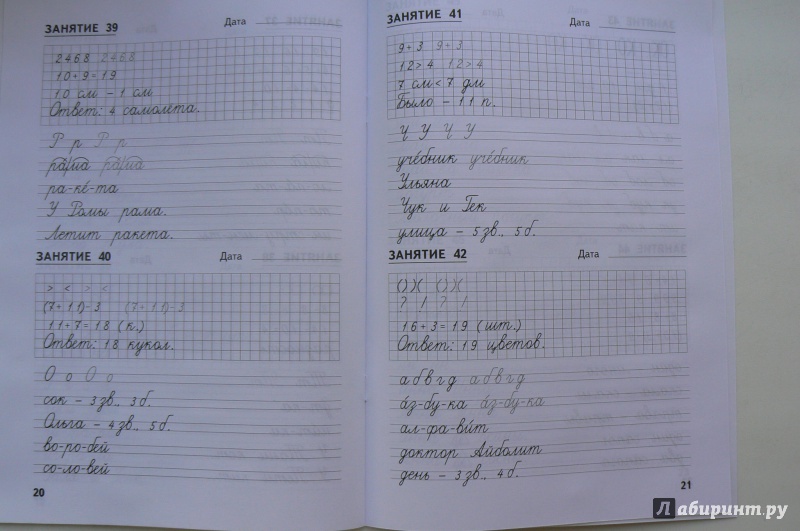 ЗАНЯТИЕ 39 Дата
2468 2468
10+9=19
10 см - 1 см
Ответ: 4 самолёта.
Р р Р р
рама рама
ра-ке́-та
У Ромы рама.
Летит ракета.
ЗАНЯТИЕ 40 Дата
> < > <
(7+11)-3 (7+11)-3
11+7=18 (к.)
Ответ: 18 кукол.
О о О о
сок - 3 зв., 3 б.
Ольга - 4 зв., 5 б.
во-ро-бей
со-ло-вей
20
ЗАНЯТИЕ 41 Дата
9+3 9+3
12>4 12>4
7 см < 7 дм
Было - 11 п.
Ч У Ч У
уче́бник уче́бник
Ульяна
Чук и Гек
улица - 5 зв., 5 б.
ЗАНЯТИЕ 42 Дата
( ) )( ( ) )(
? ! ? !
16+3=19 (шт.)
Ответ: 19 цветов.
а б в г д а б в г д
а́з-бу-ка а́з-бу-ка
ал-фа-ви́т
доктор Айболит
день - 3 зв., 4 б.
21
Лабиринт.ру